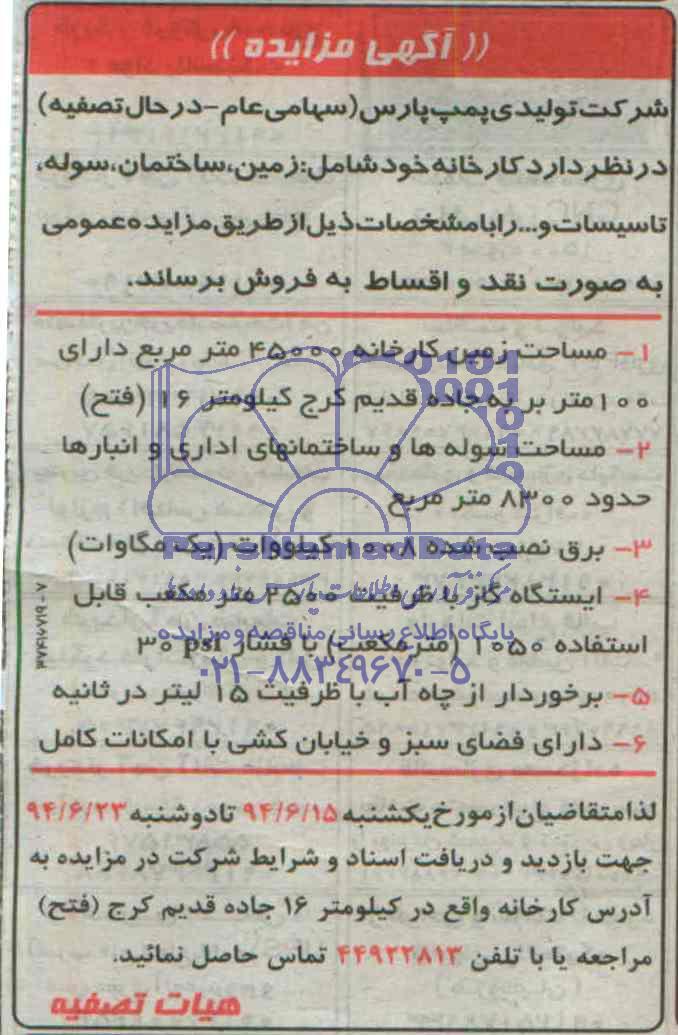 (( آگهی مزایده ))
شرکت تولیدی پمپ پارس (سهامی عام - در حال تصفیه)
در نظر دارد کارخانه خود شامل: زمین، ساختمان، سوله،
تاسیسات و... را با مشخصات ذیل از طریق مزایده عمومی
به صورت نقد و اقساط به فروش برساند.
۱- مساحت زمین کارخانه ۴۵۰۰۰ متر مربع دارای
۱۰۰ متر بر به جاده قدیم کرج کیلومتر ۱۶ (فتح)
۲- مساحت سوله ها و ساختمانهای اداری و انبارها
حدود ۸۳۰۰ متر مربع
۳- برق نصب شده ۱۰۰۸ کیلووات (یک مگاوات)
۴- ایستگاه گاز با ظرفیت ۲۵۰۰ متر مکعب قابل
استفاده ۱۰۵۰ (متر مکعب) با فشار ۳۰ psi
۵- برخوردار از چاه آب با ظرفیت ۱۵ لیتر در ثانیه
۶- دارای فضای سبز و خیابان کشی با امکانات کامل
لذا متقاضیان از مورخ یکشنبه ۹۴/۶/۱۵ تا دوشنبه ۹۴/۶/۲۳
جهت بازدید و دریافت اسناد و شرایط شرکت در مزایده به
آدرس کارخانه واقع در کیلومتر ۱۶ جاده قدیم کرج (فتح)
مراجعه یا با تلفن ۴۴۹۲۲۸۱۳ تماس حاصل نمائید.
هیات تصفیه
ParsNamadData
پایگاه اطلاع رسانی مناقصه و مزایده
۰۲۱-۸۸۳۴۹۶۷۰-۵